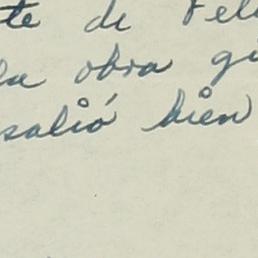 te de Fel
la obra gi
salió bien